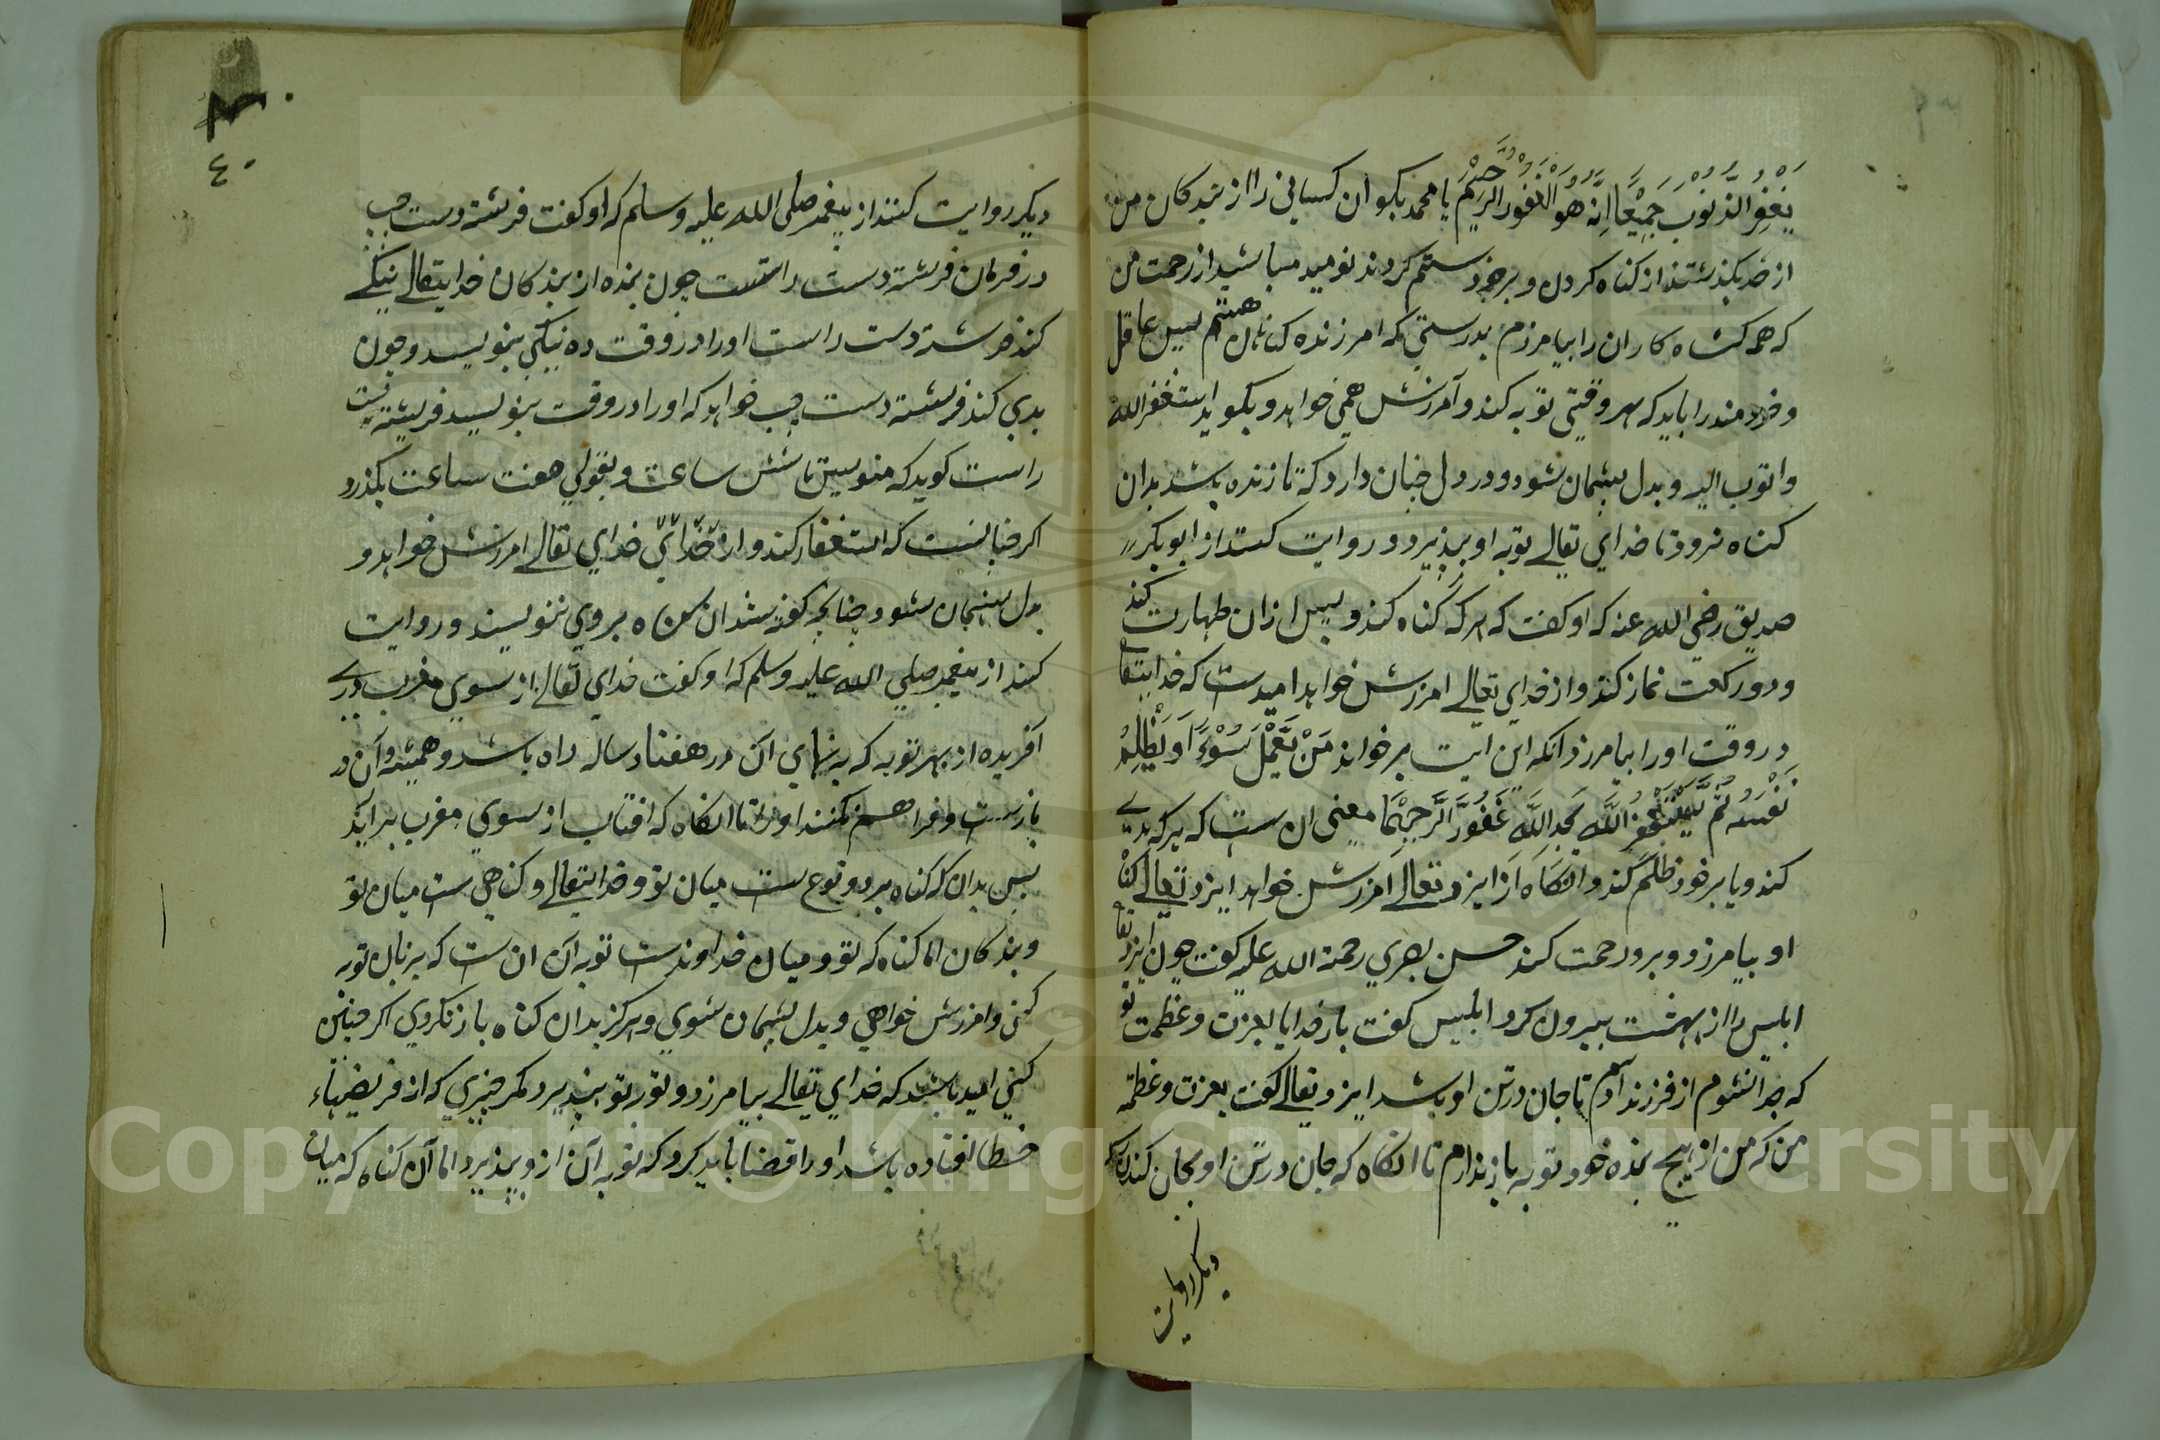 یَغْفِرُ الذُّنُوْبَ جَمِیْعًا اِنَّهُ هُوَ الْغَفُوْرُ الرَّحِیْمُ یا محمد بکو ان کسانی را از بندکان من
از حد بکذشتند از کناه کردن و بر خود ستم کردند نومید مباشید از رحمت من
که همه کناه کاران را بیامرزم بدرستی که امرزنده کناهان هستم پس عاقل
و خردمند را باید که هر وقتی توبه کند و آمرزش همی خواهد و بکوید استغفر الله
و اتوب الیه و بدل پشیمان شود و در دل چنان دارد که تا زنده باشد بدان
کناه نرود تا خدای تعالی توبه او بپذیرد و روایت کنند از ابوبکر
صدیق رضی الله عنه که او کفت که هر که کناه کند و پس از ان طهارت کند
و دو رکعت نماز کند و از خدای تعالی امرزش خواهد امیدست که خدایتعالی
در وقت اورا بیامرزد انکه این ایت برخواند مَنْ یَّعْمَلْ سُوْءًا اَوْ یَظْلِمْ
نَفْسَهُ ثُمَّ یَسْتَغْفِرِ اللّٰهَ یَجِدِ اللّٰهَ غَفُوْرًا رَّحِیْمًا معنی ان ست که هر که بدی
کند و یا بر خود ظلم کند و انکاه از ایزد تعالی امرزش خواهد ایزد تعالی کناه
او بیامرزد و برو رحمت کند حسن بصری رحمة الله علیه کفت چون ایزد تعالی
ابلیس را از بهشت بیرون کرد ابلیس کفت بار خدایا بعزت و عظمت تو
که جدا نشوم از فرزند آدم تا جان در تن او باشد ایزد تعالی کفت بعزت و عظمة
من که من از هیچ بنده خود توبه باز ندارم تا انکاه که جان در تن او بجان کندن
دیکر روایت
٤٠
دیکر روایت کنند از پیغمبر صلی الله علیه وسلم که او کفت فرشته دست چپ
در فرمان فرشته دست راستست چون بنده از بندکان خدایتعالی نیکی
کند فرشته دست راست اورا در وقت ده نیکی بنویسد و چون
بدی کند فرشته دست چپ خواهد که اورا در وقت بنویسد فرشته دست
راست کوید که منویس تا شش ساعت و بقولی هفت ساعت بکذرد
اکر چنانست که استغفار کند و از خدای خدای تعالی امرزش خواهد و
بدل پشیمان شود چنانچه کفته شد ان کناه بر وی ننویسند و روایت
کنند از پیغمبر صلی الله علیه وسلم که او کفت خدای تعالی از سوی مغرب دری
آفریده از بهر توبه که پهنای آن در هفتاد ساله راه باشد و همیشه آن در
بازست و فراهم نکنند اورا تا انکاه که افتاب از سوی مغرب براید
پس بدان که کناه بر دو نوع ست میان تو و خدایتعالی و کناهی ست میان تو
و بندکان اما کناه که تو و میان خداوندست توبه آن ان ست که بزبان توبه
کنی و امرزش خواهی و بدل پشیمان شوی و هرکز بدان کناه باز نکردی اکر چنین
کنی امید باشد که خدای تعالی بیامرزد و تو را توبه پذیرد مکر چیزی که از فریضهاء
خطا افتاده باشد اورا قضا باید کرد که توبه آن از و بپذیرد اما آن کناه که میان
Copyright © King Saud University